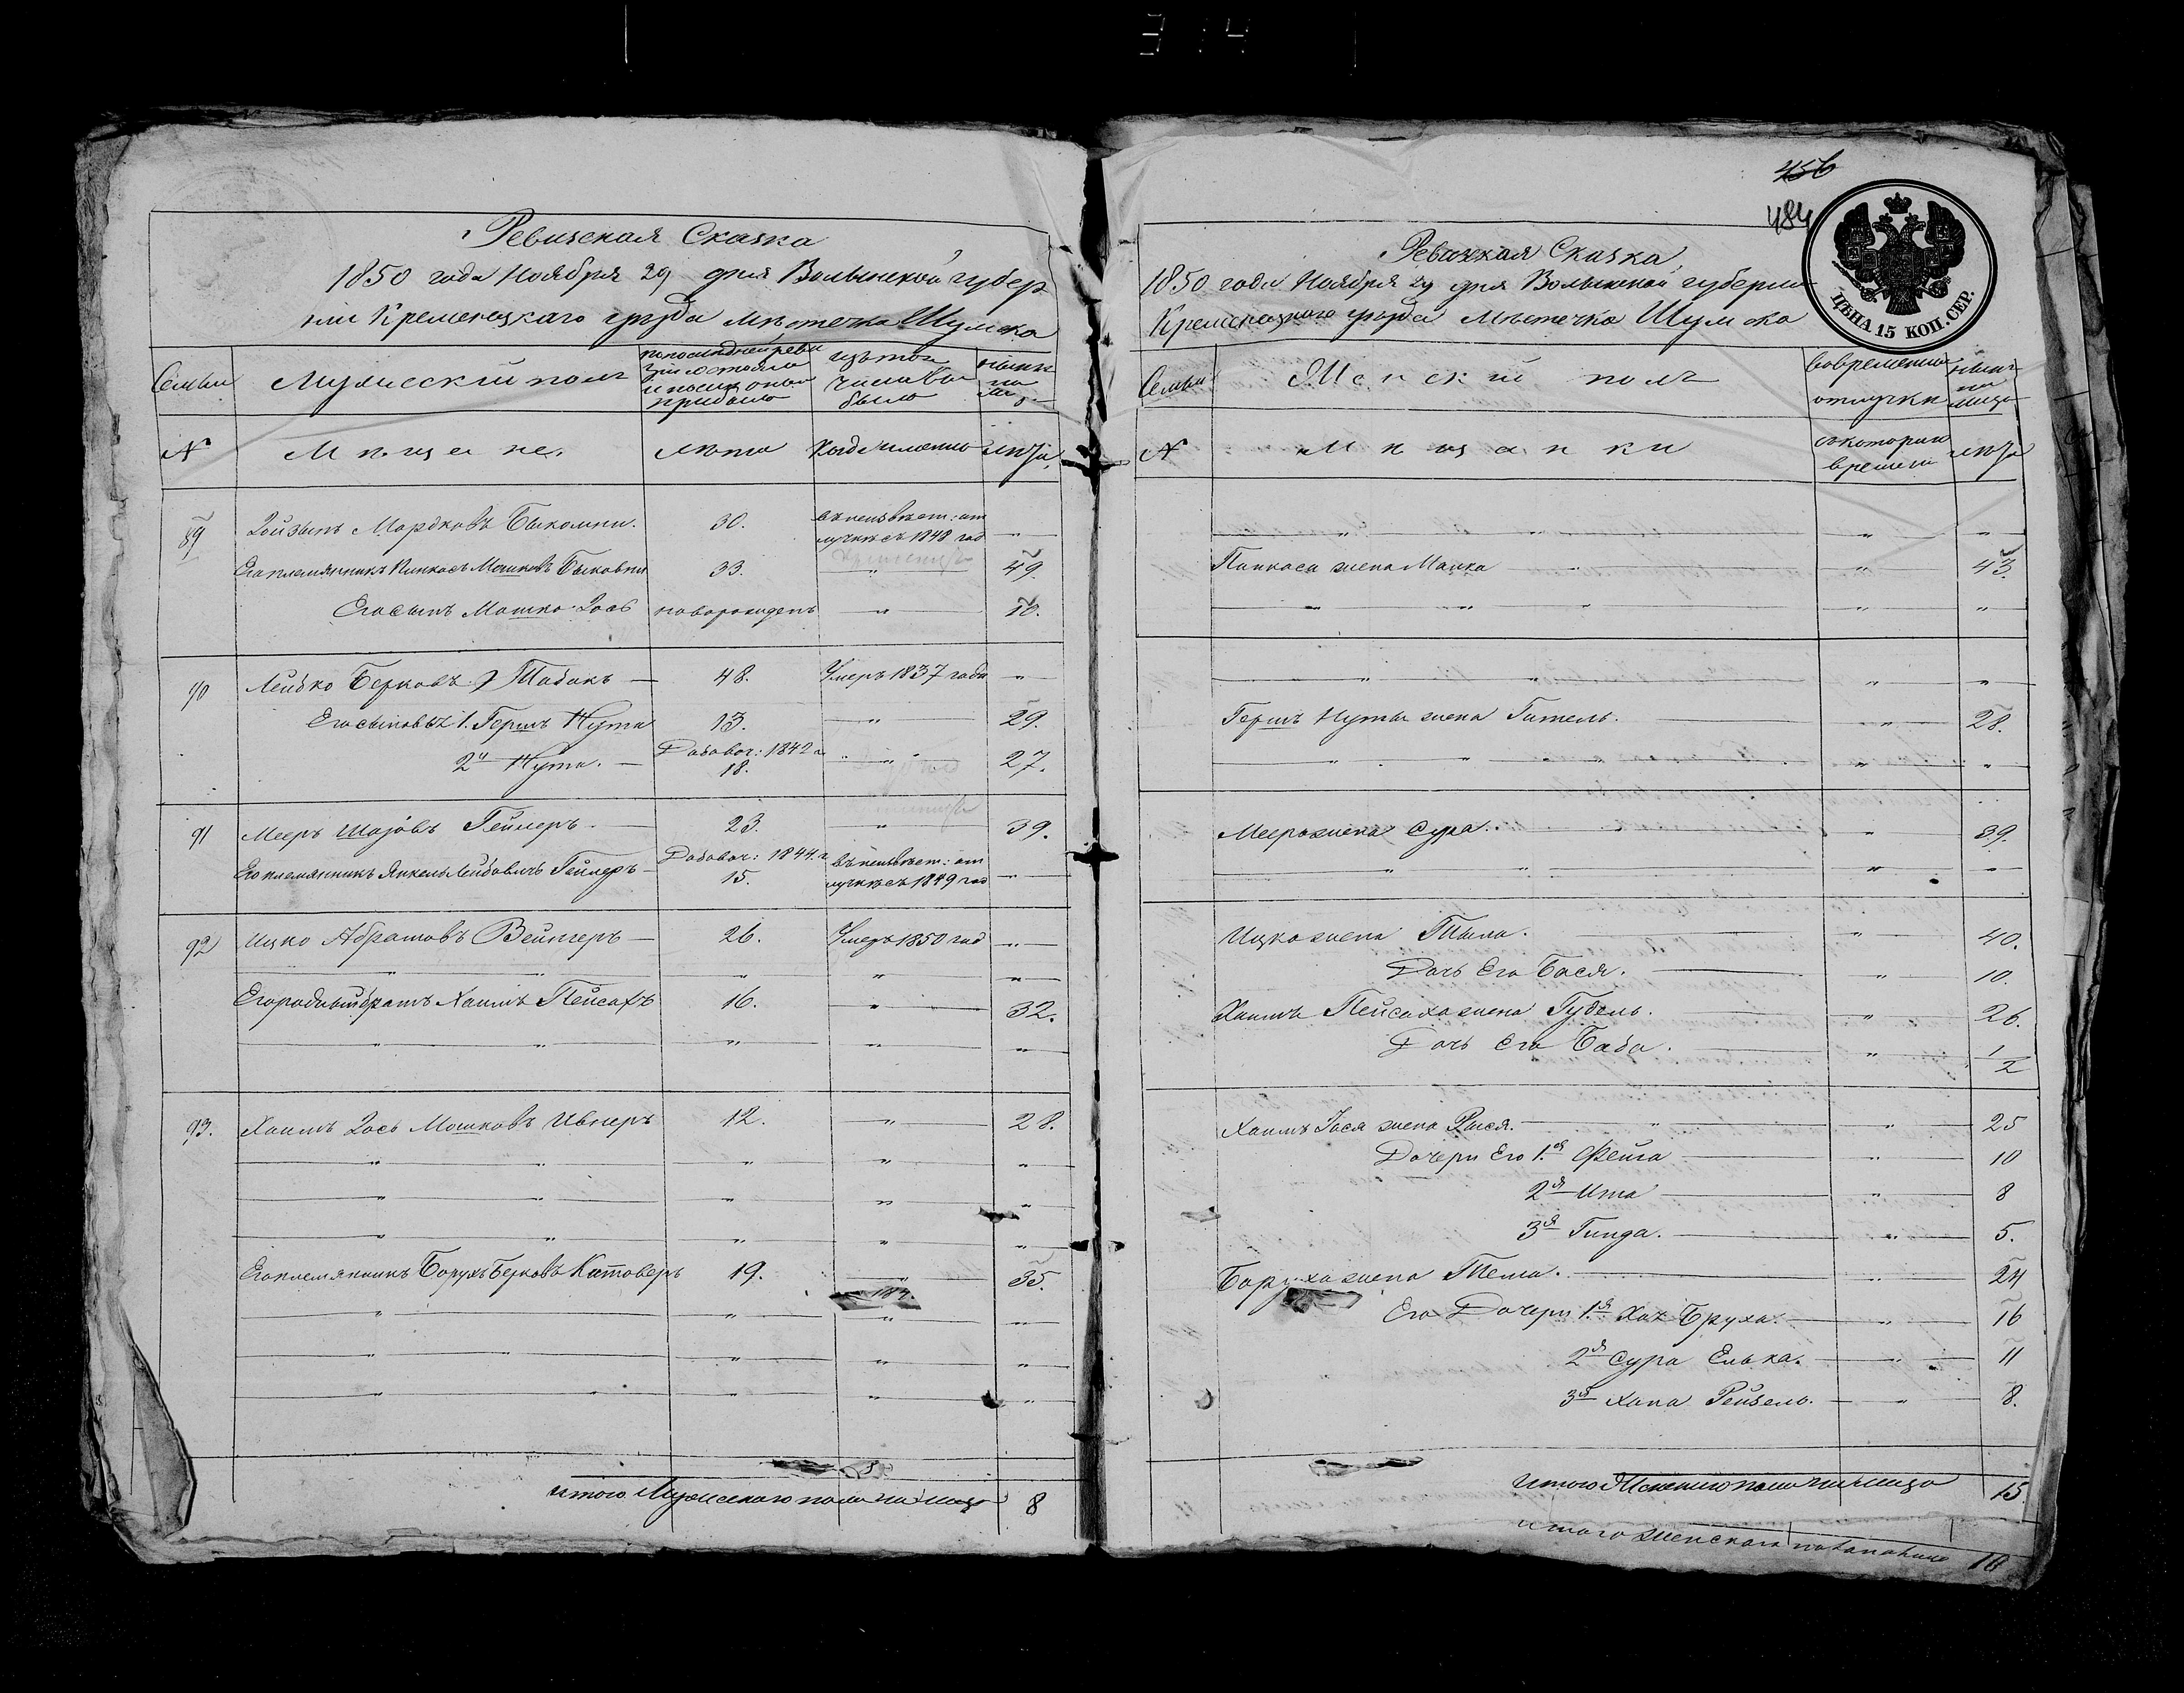 314
Ревизская Сказка
1850 года Ноября 29 дня Волынской губер
нии Кременецкаго уезда местечка Шумска
Семьи
Мужеский полъ
по последней реви
зіи состояло
и после оной
прибыло
изъ того
числа вы
было
ныне
на
лицо
№
Мещане.
Лета
Когда именно
лета
89
Зойзынъ Мордковъ Быкомпи.
30.
въ неизвест: от
лучке съ 1848 год
"
Его племянникъ Пинкасъ Мошковъ Быковпи
33.
"
49.
Его сынъ Мошко Зось
новорожденъ
"
10.
90
Лейбко Берковъ Табакъ
48.
Умеръ 1837 года
"
Его сыновья 1. Гершъ Нута
13.
"
29.
2й Нута.
Добавоч: 1842 г
18.
"
27.
91
Мееръ Шаэовъ Геймеръ
23.
"
39.
Его племянникъ Янкель Лейбовичъ Геймеръ
Добавоч: 1844 г
15.
въ неизвест: от
лучке съ 1849 год
"
92
Ицко Абрамовъ Вейнгеръ
26.
Умеръ 1850 год
"
Его родный братъ Хаимъ Пейсахъ
16.
"
32.
93.
Хаимъ Зось Мошковъ Ивнеръ
12.
"
28.
Его племянникъ Борухъ Берковъ Катоверъ
19.
"
35.
184.
итого Мужескаго пола на лицо
8
456
484
ЦЕНА 15 КОП. СЕР.
Ревизская Сказка
1850 года Ноября 29 дня Волынской губернии
Кременецкаго уезда Местечка Шумска
Семьи
Женский полъ
Во временной
отлучке
ныне
на
лицо
№
Мещанки
съ котораго
времени
лета
Пинкаса жена Малка
"
43.
Гершъ Нуты жена Гитель.
"
28.
Меера жена Сура.
"
39.
Ицка жена Тыла.
"
40.
Дочь Его Бася.
"
10.
Хаимъ Пейсаха жена Гудель.
"
26.
Дочь Его Баба.
"
1/2
Хаимъ Зося жена Рыся.
"
25
Дочери Его 1.я Фейга
"
10
2я Ита
"
8
3я Гинда.
"
5.
Боруха жена Тема.
"
24
Его Дочери 1.я Хая Бруха.
"
16
2я Сура Елька.
"
11
3я Хана Рейзель.
"
8.
итого Женскаго пола на лицо
15.
итого женскаго пола на лицо
10